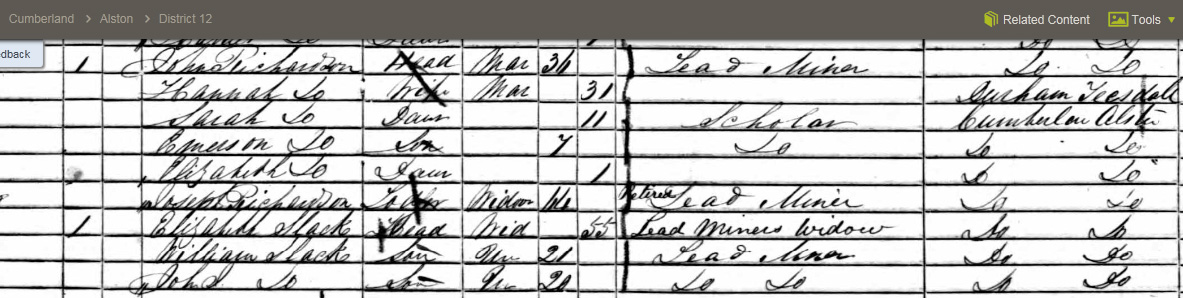 Cumberland > Alston > District 12 Related Content Tools
edback
1 John Richardson Head Mar 36 Lead Miner Do Do
Hannah Do Wife Mar 31 Durham Teesdale
Sarah Do Daur 11 Scholar Cumberlan Alston
Emerson Do Son 7 Do Do Do
Elizabeth Do Daur 1 Do Do
Joseph Richardson Widowr Retired Lead Miner Do Do
1 Elizabeth Slack Head Wid 55 Lead Miners Widow Do Do
William Slack Son Un 21 Lead Miner Do Do
John Do Son Un 20 Do Do Do Do